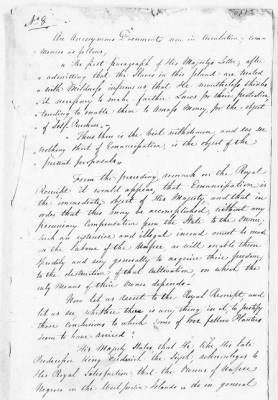 No 8.
An Anonymous Document now in circulation com-
mences as follows,
"The first paragraph of His Majestys Letter, after
admitting that the Slaves in this Island are treated
with Mildness informs us that He nevertheless thinks
it necessary to make further Laws for their protection
tending to enable them to amass Money, for the object
of Self Purchase."
Thus then is the Veil withdrawn, and we see
nothing short of Emancipation, is the object of the
present proposals.
From the preceding remark on the Royal
Rescript it would appear, that Emancipation is
the immediate object of His Majesty, and that in
order that this may be accomplished without any
pecuniary compensation from the State to the Owner,
such an extensive and illegal inroad must be made
on the Labour of the Negroe as will enable them
speedily and very generally to acquire their freedom,
to the destruction of that cultivation, on which the
only Means of their Owner depends.
Now let us resort to the Royal Rescript, and
let us see, whether there is any thing in it, to justify
those conclusions to which some of our fellow Planters
seem to have arrived:
His Majesty States that He, like the late
Predecessor King Frederick the Sixth, acknowledges to
His Royal Satisfaction that the Owners of Negroes
Negroes in the West India Islands do in general